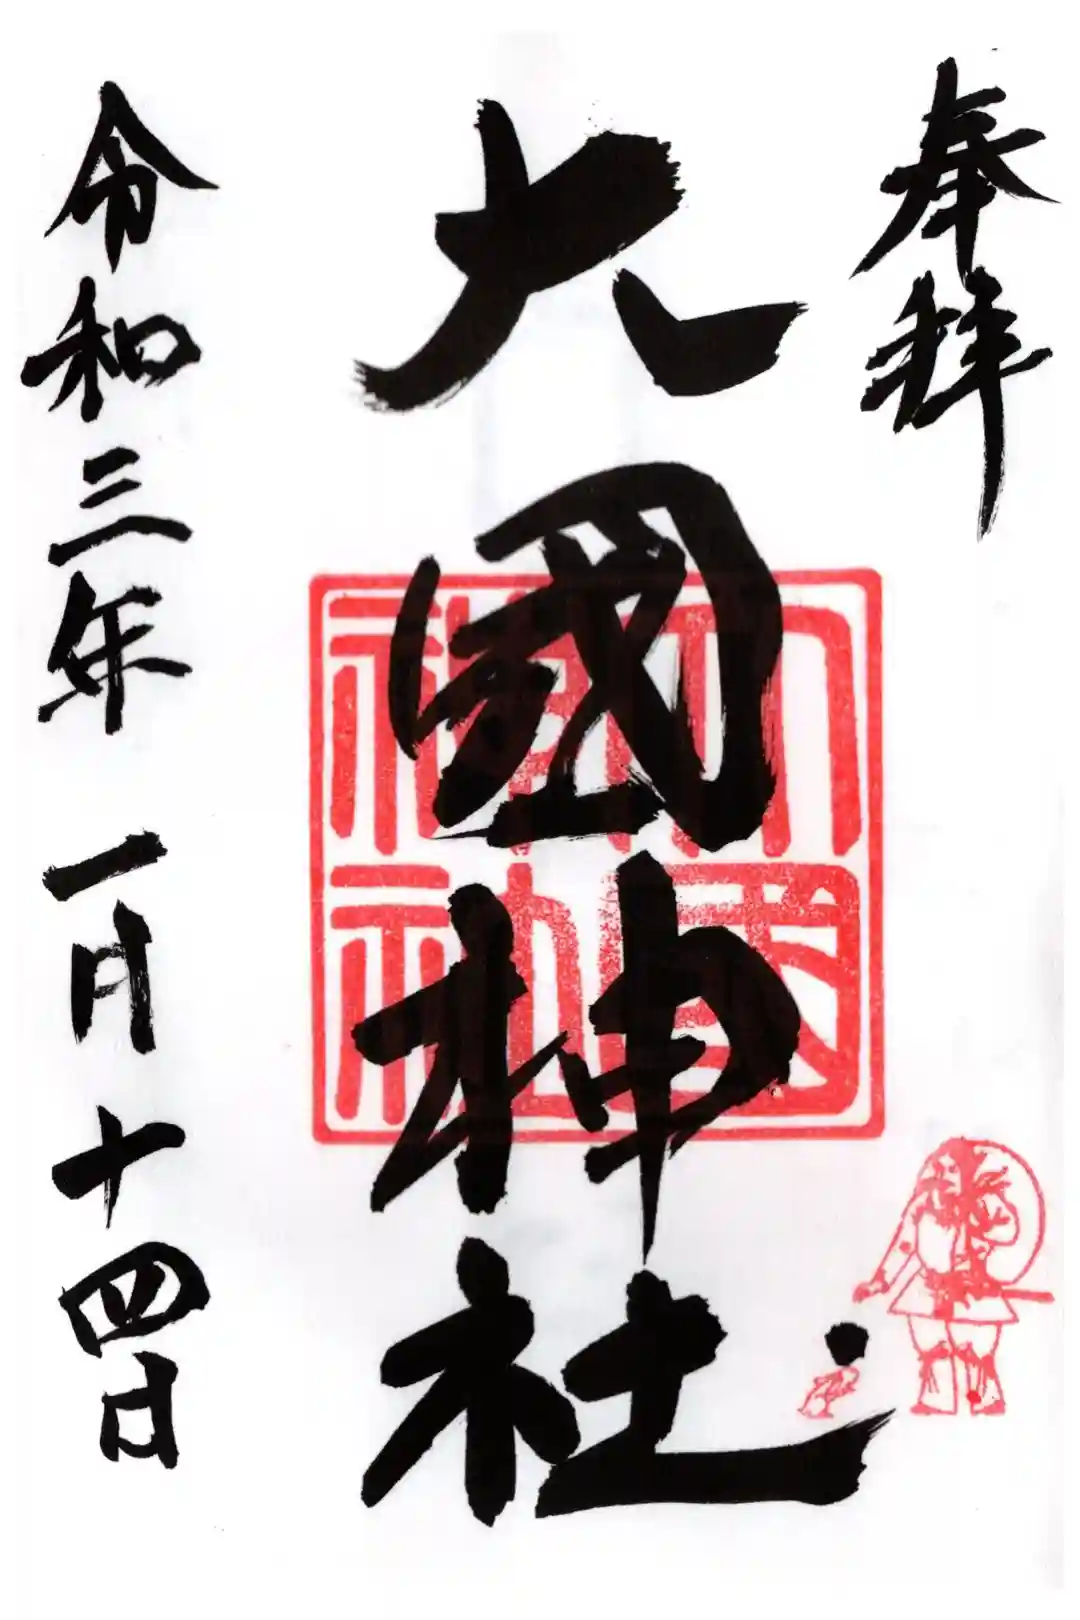 奉拝
大國神社
大國
神社
令和三年 一月十四日